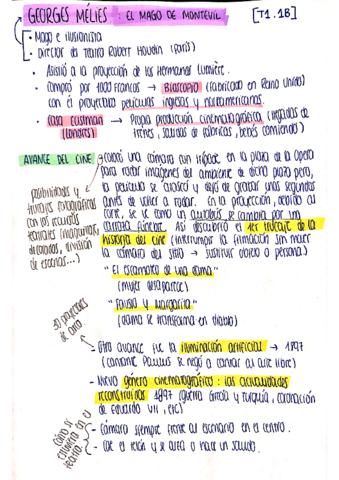 GEORGES MÉLIÈS : EL MAGO DE MONTEVIL [T1.1B]
· Mago e ilusionista
· Director de Teatro Robert Houdin (París)
· Asistió a la proyección de los Hermanos Lumière.
· Compró por 1000 Francos → Bioscopio (fabricado en Reino Unido)
con él proyectaba películas inglesas y norteamericanas.
· Casa Eastman → Propia producción cinematográfica (llegadas de
(Londres) trenes, salidas de fábricas, bebés comiendo)
AVANCE DEL CINE: colocó una cámara con trípode en la plaza de la Ópera
para rodar imágenes del ambiente de dicha plaza pero,
la película se atascó y dejó de grabar unos segundos
antes de volver a rodar. En la proyección, debido al
corte, se ve como un autobús se cambia por una
carroza fúnebre. Así descubrió el 1er trucaje de la
historia del cine (interrumpir la filmación sin mover
la cámara del sitio → sustituir objeto o persona)
posibilidades y
trucajes fotográficos
con los recursos
teatrales (maquinarias,
decorados, división
de escenas...)
" El escamoteo de una dama "
(mujer desaparece)
" Fausto y Margarita "
(dama se transforma en diablo)
30 proyectores
de arco.
- Otro avance fue la iluminación artificial → 1897
(cantante Paulus se negó a cantar al aire libre)
- Nuevo género cinematográfico : las actualidades
reconstruidas 1897 (guerra Grecia y Turquía, coronación
de Eduardo VII, etc)
cómo si
estuviera en el
teatro.
- Cámara siempre frente al escenario en el centro.
- Cae el telón y se alza o hace un saludo.